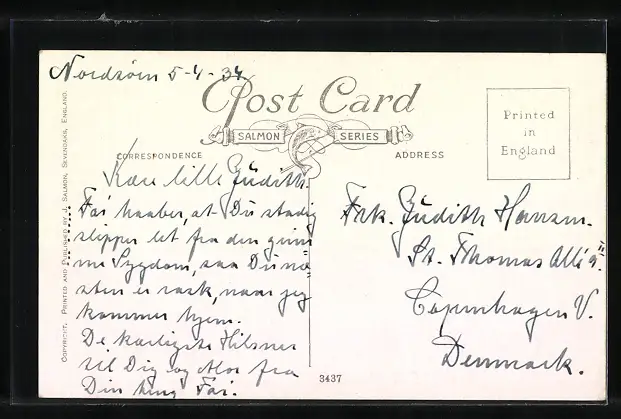 Nordsöen 5-4-34
Post Card
SALMON SERIES
CORRESPONDENCE
ADDRESS
Printed
in
England
COPYRIGHT. PRINTED AND PUBLISHED BY J. SALMON, SEVENOAKS, ENGLAND.
Kære lille Judith.
Far haaber, at Du stadig
slipper let fra den grim
me Sygdom, saa Du næ
sten er rask, naar jeg
kommer hjem.
De kærligste Hilsner
til Dig og Mor fra
Din Far.
Frk. Judith Hansen.
St. Thomas Allé
Copenhagen V.
Denmark.
3437